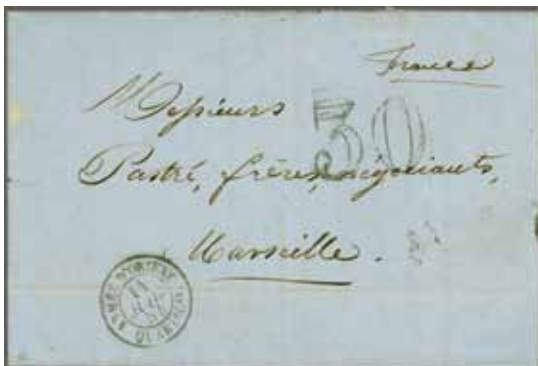 France
Messieurs
30
Pastré, frères, négociants,
Marseille.
ARMÉE D'ORIENT
QUARTIER